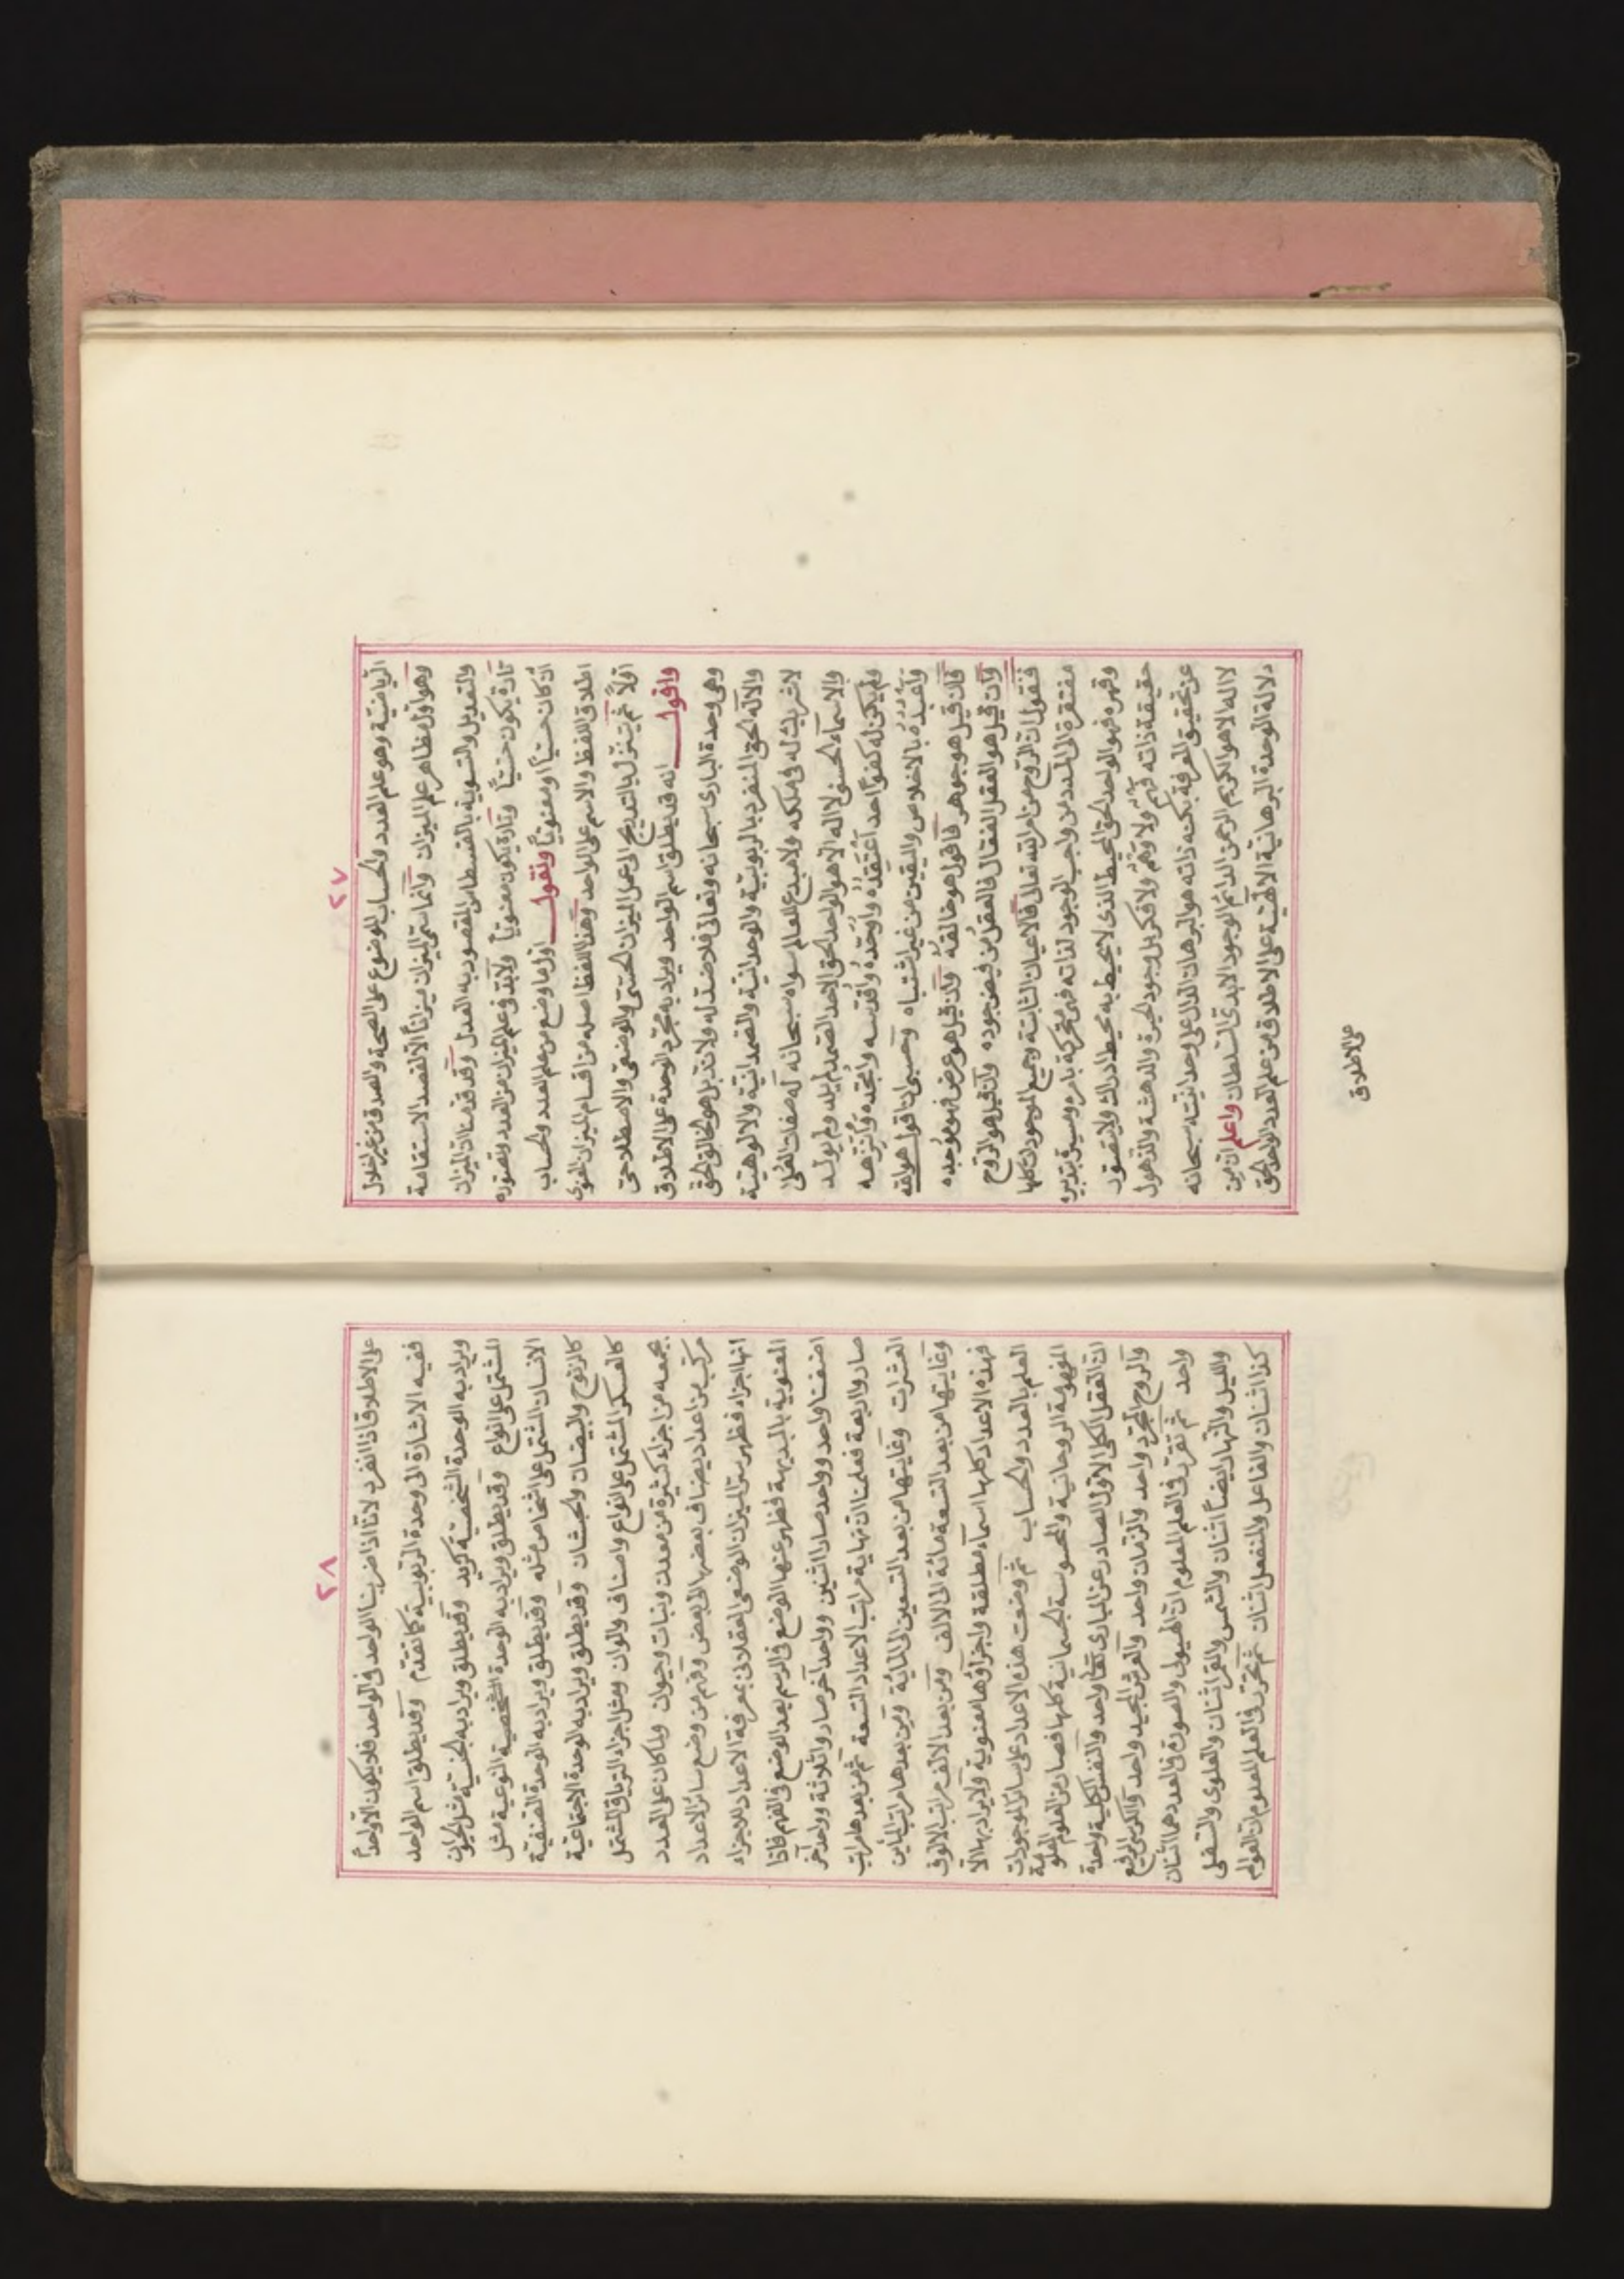 ٢٧
الرياضية وهو علم العدد والحساب الموضوع على الصحة والصدق من غير اختلال
وهو أول مظاهر علم الميزان وانما سمى الميزان ميزاناً لانه لقصد الاستقامة
والتعديل والتسوية بالقسطاس المقصود به العدل وقد قدمنا ان الميزان
تارة يكون حسيّاً وتارة يكون معنويّاً ولابد في علم الميزان من العدد وتصوره
ان كان حسيّاً او معنويّاً ونقول اول ما وضع من علم العدد والحساب
اطلاق اللفظ والاسم على الواحد وهذا اللفظ اصله من اقسام الميزان اللغوى
اولاً ثم يتنزل بالتدريج الى عمل الميزان الحسّى والوضعى والاصطلاحى
واقول انه قد يطلق اسم الواحد ويراد به مجرّد الوحدة على الاطلاق
وهى وحدة البارى سبحانه وتعالى فلا ضدّ له ولا ندّ بل هو الخالق الحق
والاله الحق المنفرد بالربوبيّة والوحدانية والصمدانيّة والالوهيّة
لا شريك له فى ملكه ولا مبدع للعالم سواه سبحانه له صفات العُلا
والاسماء الحسنى لا اله الا هو الواحد الحق الاحد الصمد لم يلد ولم يولد
ولم يكن له كفوًا احد أعتقده وأوحّده وأقدّسه وأمجّده وأنزّهه
وأعبده بالاخلاص واليقين من غير اشتباه وحسبى انا اقول هو الله
فان قيل هو جوهر فاقول هو خالقه وان قيل هو عرض فهو موجده
وان قيل هو العقل الفعّال فالعقل من فيض جوده وان قيل هو الروح
فنقول ان الروح من امر الله تعالى فالاعيان الثابتة وجميع الموجودات كلها
مفتقرة الى المدد من واجب الوجود لذاته فهى متحركة بامره ومسبوقة بتدبيره
وقهره فهو الواحد الحق المحيط الذى لا يحيط به محيط ادراك ولا يتصوّر
حقيقة ذاته فهم ولا وهم ولا فكر بل وجود الحيرة والدهشة والذهول
عن تحقيق المعرفة بكنه ذاته هو البرهان الدال على وحدانيّته سبحانه
لا اله الا هو الكريم الرحمن الدائم الوجود الابدى السلطان واعلم ان من
دلالة الوحدة البرهانية الالهية على الاطلاق من علم العدد الواحد الحق
على الاطلاق
٢٨
على الاطلاق اذا انفرد لانّا اذا ضربنا الواحد فى الواحد فلا يكون الا واحداً
ففيه الاشارة الى وحدة الربوبيّة كما تقدّم وقد يطلق اسم الواحد
ويراد به الوحدة الشخصيّة كزيد وقد يطلق ويراد به الجنسيّة مثل الحيوان
المشتمل على انواع وقد يطلق ويراد به الوحدة الشخصية النوعية مثل
الانسان المشتمل على اشخاص مثله وقد يطلق ويراد به الوحدة الصنفيّة
كالزنوج والبيضان والحبشان وقد يطلق ويراد به الوحدة الاجتماعيّة
كالعسكر المشتمل على انواع واصناف والوان ومثل اجزاء الترياق المشتمل
بجمعه من اجزاء كثيرة من معدن ونبات وحيوان ولما كان على العدد
مركّب من اعداد يضاف بعضها الى بعض وفهم من وضع سائر الاعداد
انها اجزاء فظهر سرّ الميزان الوضعى العقلانى بمعرفة الاعداد للاجزاء
المعنوية بالبديهة فظهر عنها الوضع فى الرسم بعد الوضع فى الفهم فاذا
اضفنا واحد وواحد صارا اثنين وواحد آخر صاروا ثلاثة وواحد آخر
صاروا اربعة فعلمنا ان نهاية مراتب الاعداد التسعة ثم من بعدها مراتب
العشرات وغايتها من بعد التسعين الى المائة ومن بعدها مراتب المأين
وغايتها من بعد التسعمائة الى الالف ومن بعد الالف مراتب الالوف
فهذه الاعداد كلها اسماء مطلقة واجزاؤها معنوية ولا يراد بها الا
العلم بالعدد والحساب ثم وضعت هذه الاعداد على سائر الموجودات
المفهومة الروحانية والمحسوسة الجسمانية كلها فصار من العلوم المعلومة
ان العقل الكلى الاول الصادر عن البارى تعالى واحد والنفس الكلية واحدة
والروح المجرّد واحد والزمان واحد والعرش المجيد واحد والكرسى الرفيع
واحد ثم تقرّر فى العلم المعلوم ان الهيولى والصورة فى العدد هما اثنان
والليل والنهار ايضاً اثنان والشمس والقمر اثنان والعلوى والسفلى
كذا اثنان والفاعل والمنفعل اثنان ثم تحرّر فى العلم المعلوم ان العوالم